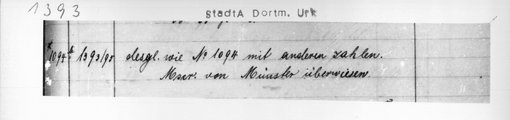 1393
StadtA Dortm. Urk
1094a 1393/95 desgl. wie No 1094 mit anderen Zahlen.
Mscr. von Münster überwiesen.